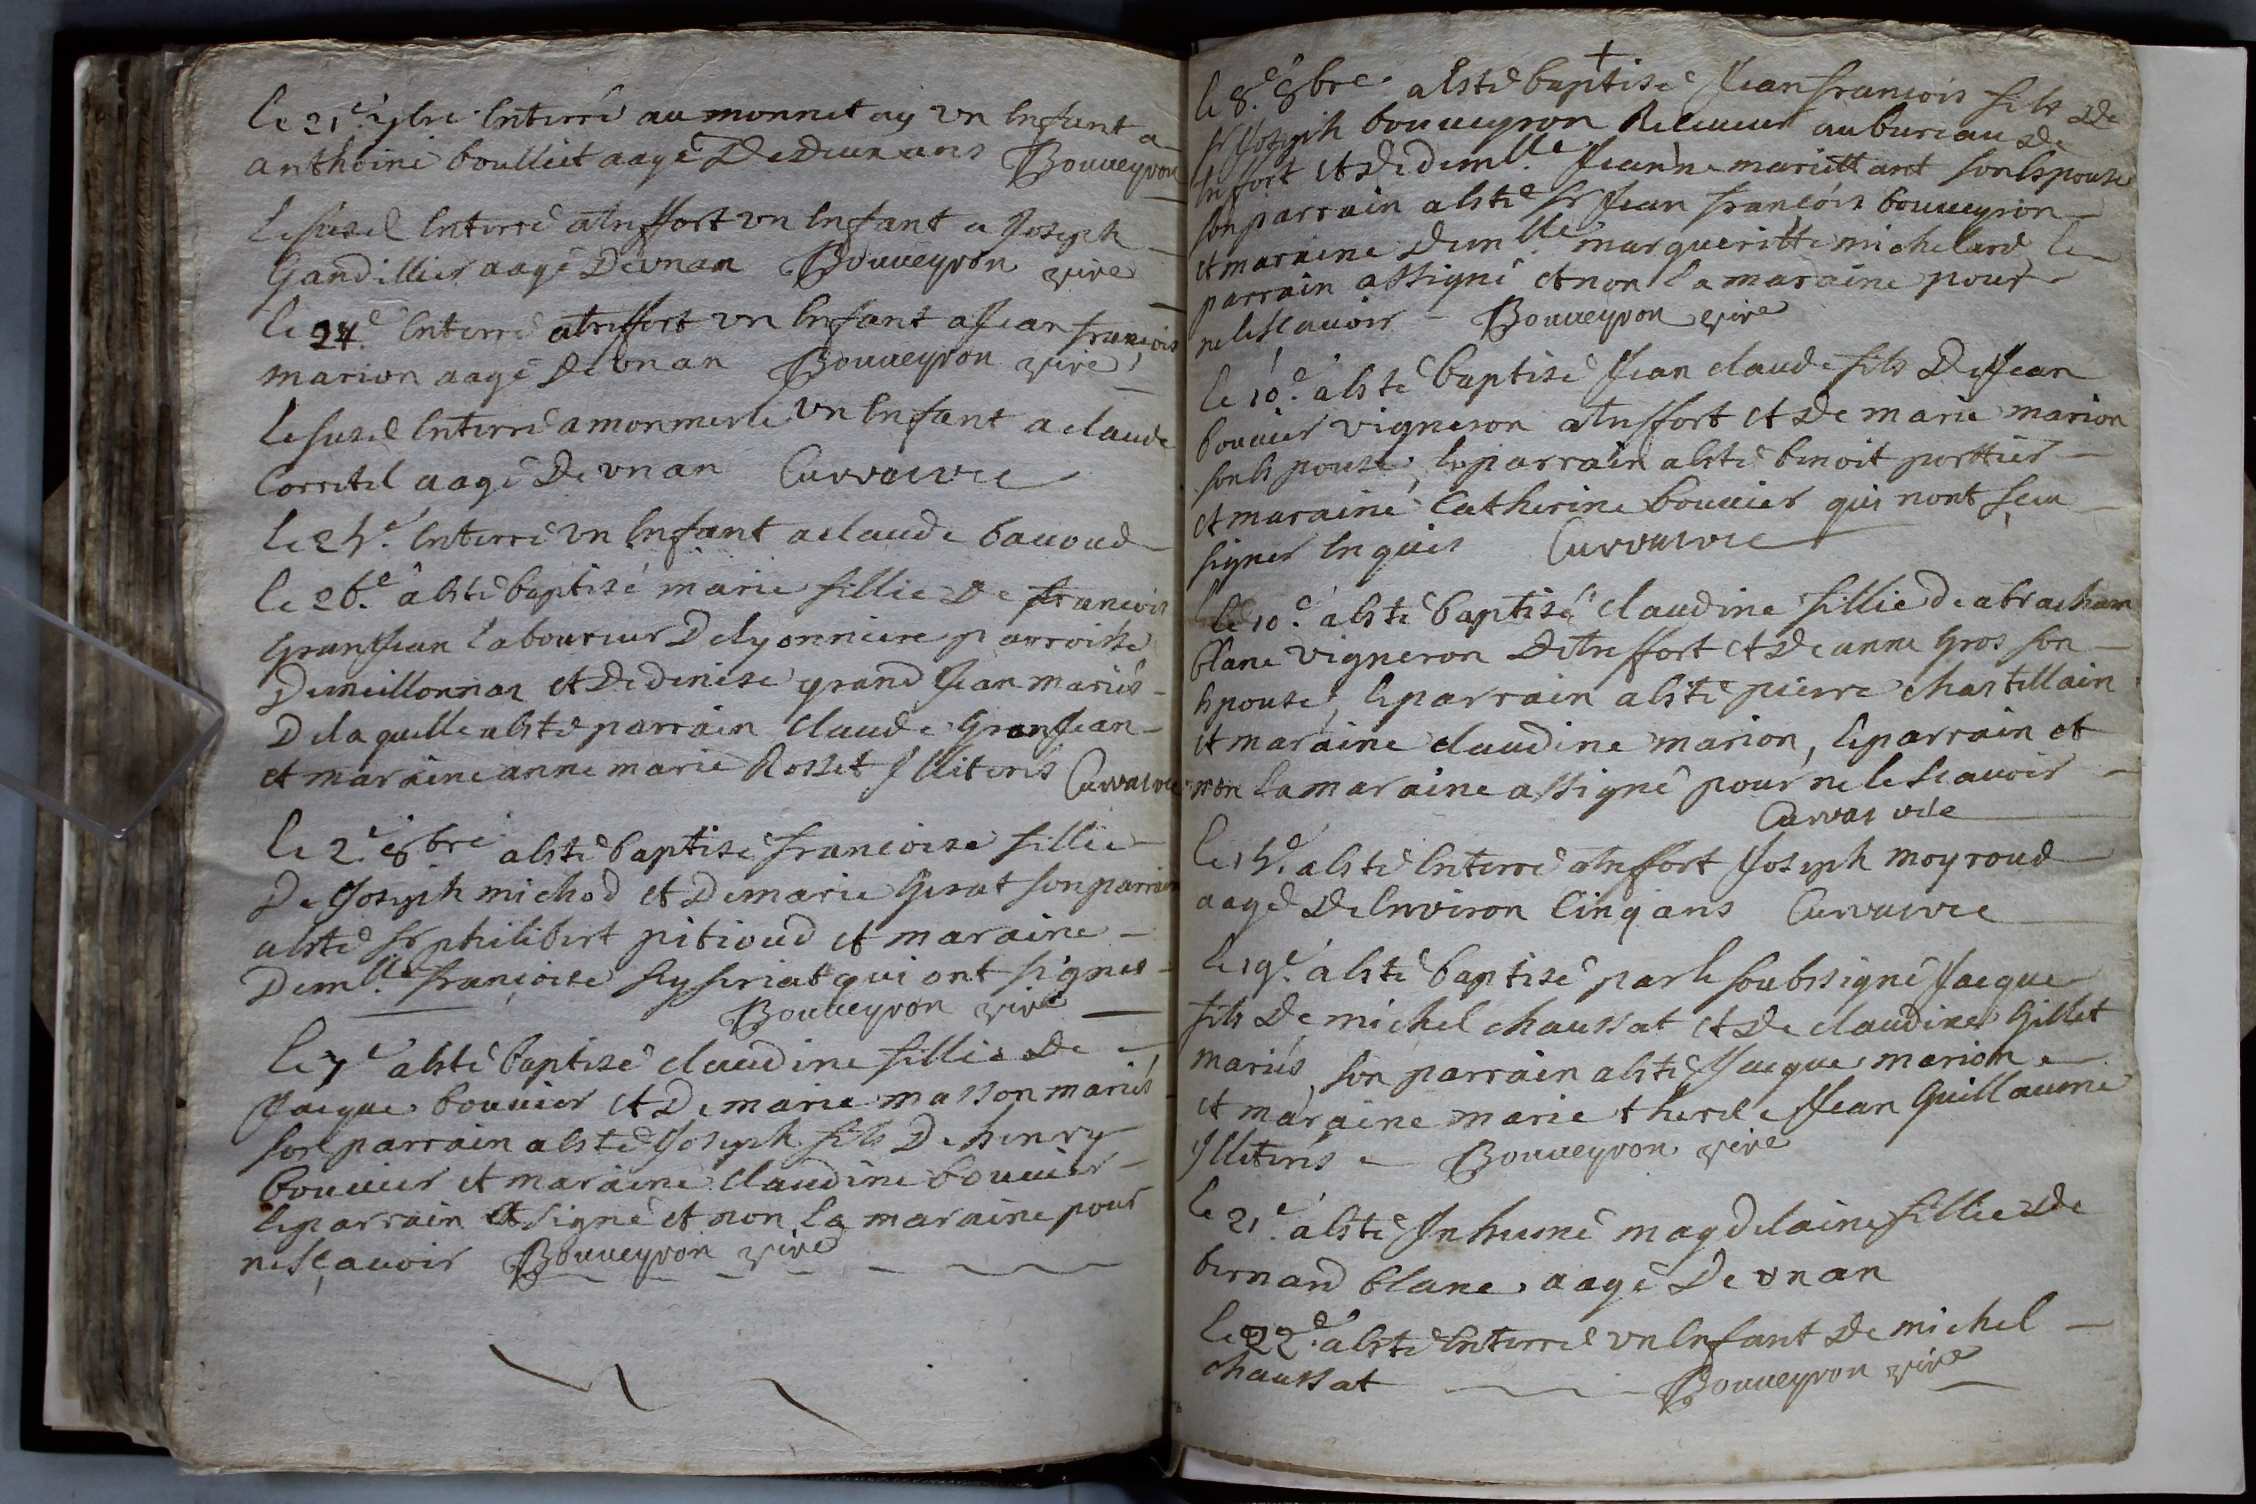 le 21.e 7bre Enterré au monnet ay un Enfant a
anthoine boulliet aagé De Deux ans Bouveyron
Le susd Enterré a treffort vn Enfant a Joseph
Gandillier aagé De vn an Bouveyron vire
le 24.e Enterré a treffort vn Enfant a Jean françois
marion aagé De vn an Bouveyron vire
Le susd Enterré a monmerle vn Enfant a claude
Corretel aagé De vn an
le 25.e Enterré vn Enfant a claude bavoud
le 26.e a esté baptisé marie fillie De francois
GranJean laboureur De lyonniere parroisse
De meillonnas et De denise grand Jean mariés
De laquelle a esté parrain claude GranJean
et maraine anne marie Rosset Illiterés
le 2.e 8.bre a esté baptisé francoise fillie
De Joseph michod et De marie Gerat son parrain
a esté sr philibert pitioud et maraine
Dem.lle françoise qui ont signes
Bouveyron vire
le 7.e a esté baptisé claudine fillie De
Jacque bouvier et De marie masson mariés
son parrain a esté Joseph fils De henry
bouvier et maraine claudine bouvier
le parrain a signé et non la maraine pour
ne sçavoir Bouveyron vire
le 8.e 8bre a esté baptisé Jean francois fils De
sr Joseph bouveyron Releveur au bureau De
treffort et De dem.lle Jeanne mariettant son Espouse
son parrain a esté sr Jean françois bouveyron
et maraine Dem.lle margueritte michelard le
parrain a ssigné et non la maraine pour
ne le sçavoir Bouveyron vire
le 10.e a esté baptisé Jean claude fils De Jean
bouvier vigneron a treffort et De marie marion
son Espouse, le parrain a esté benoit porttier
et maraine Catherine bouvier qui nont sceu
signer Enquis
le 10.e a esté baptisé claudine fillie De abracham
blanc vigneron De treffort et De anne Gros son
Epouse, le parrain a esté pierre chastillain
et maraine claudine marion, le parrain et
non la maraine a ssigné pour ne le scavoir
le 15.e a esté Enterré a treffort Joseph moyroud
aagé De Environ Cinq ans
le 19.e a esté baptisé par le soubssigné Jacque
fils De michel chaussat et De claudine Gillet
mariés, son parrain a esté Jacque marion
et maraine marie therese Jean Guillaume
Illiterés Bouveyron vire
le 21.e a esté Inhumé magdelaine fillie De
bernard blanc aagé De vn an
le 22.e a esté Enterré vn Enfant De michel
chaussat Bouveyron vire